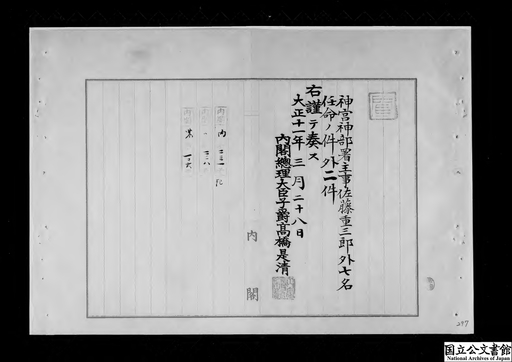 神宮神部署主事佐藤重三郎外七名
任命ノ件外二件
右謹テ奏ス
大正十一年三月二十八日
內閣總理大臣子爵高橋是清
內閣
297
国立公文書館
National Archives of Japan